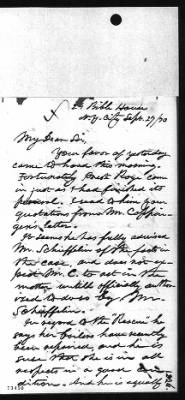 Bible House
N.Y. City Sept. 29/70
My Dear Sir
Your favor of yesterday
came to hand this morning.
Fortunately Capt Roys came
in just as I had finished its
perusal. I read to him your
quotations from Mr. Coppin-
ger's letter.
It seems he has fully advised
Mr. Schieffelin of the facts in
the case, and does not ex-
pect Mr. C. to act in the
matter until officially author-
ized to do so by Mr.
Schieffelin.
In regard to the Rescue he
says her boilers have recently
been repaired, and he is
sure that she is in all
respects in a good con-
dition. And he is equally